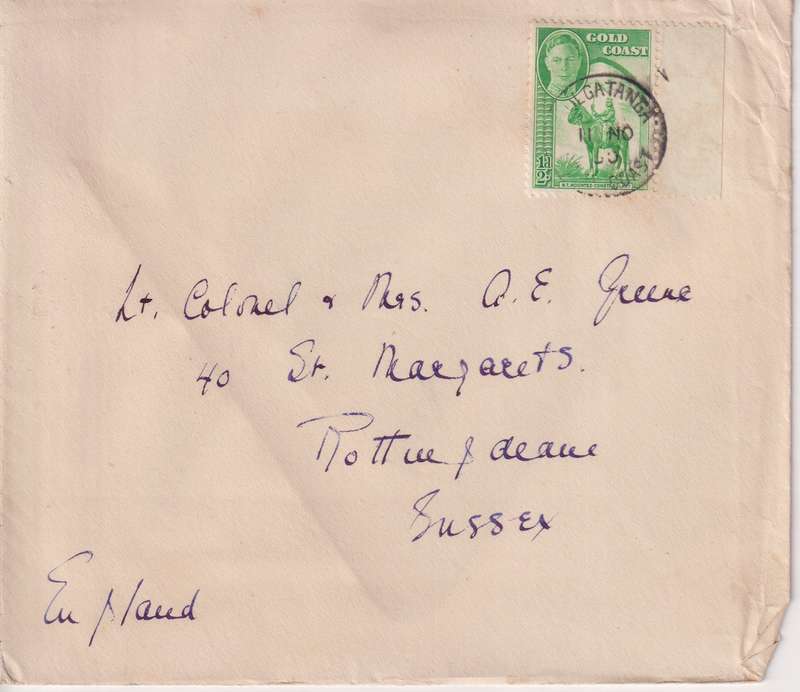 GOLD
COAST
1½D
N.T. MOUNTED CONSTABULARY
11 NO
COAST
Lt. Colonel & Mrs. A. E. Greene
40 St. Margarets.
Rottingdeane
Sussex
England